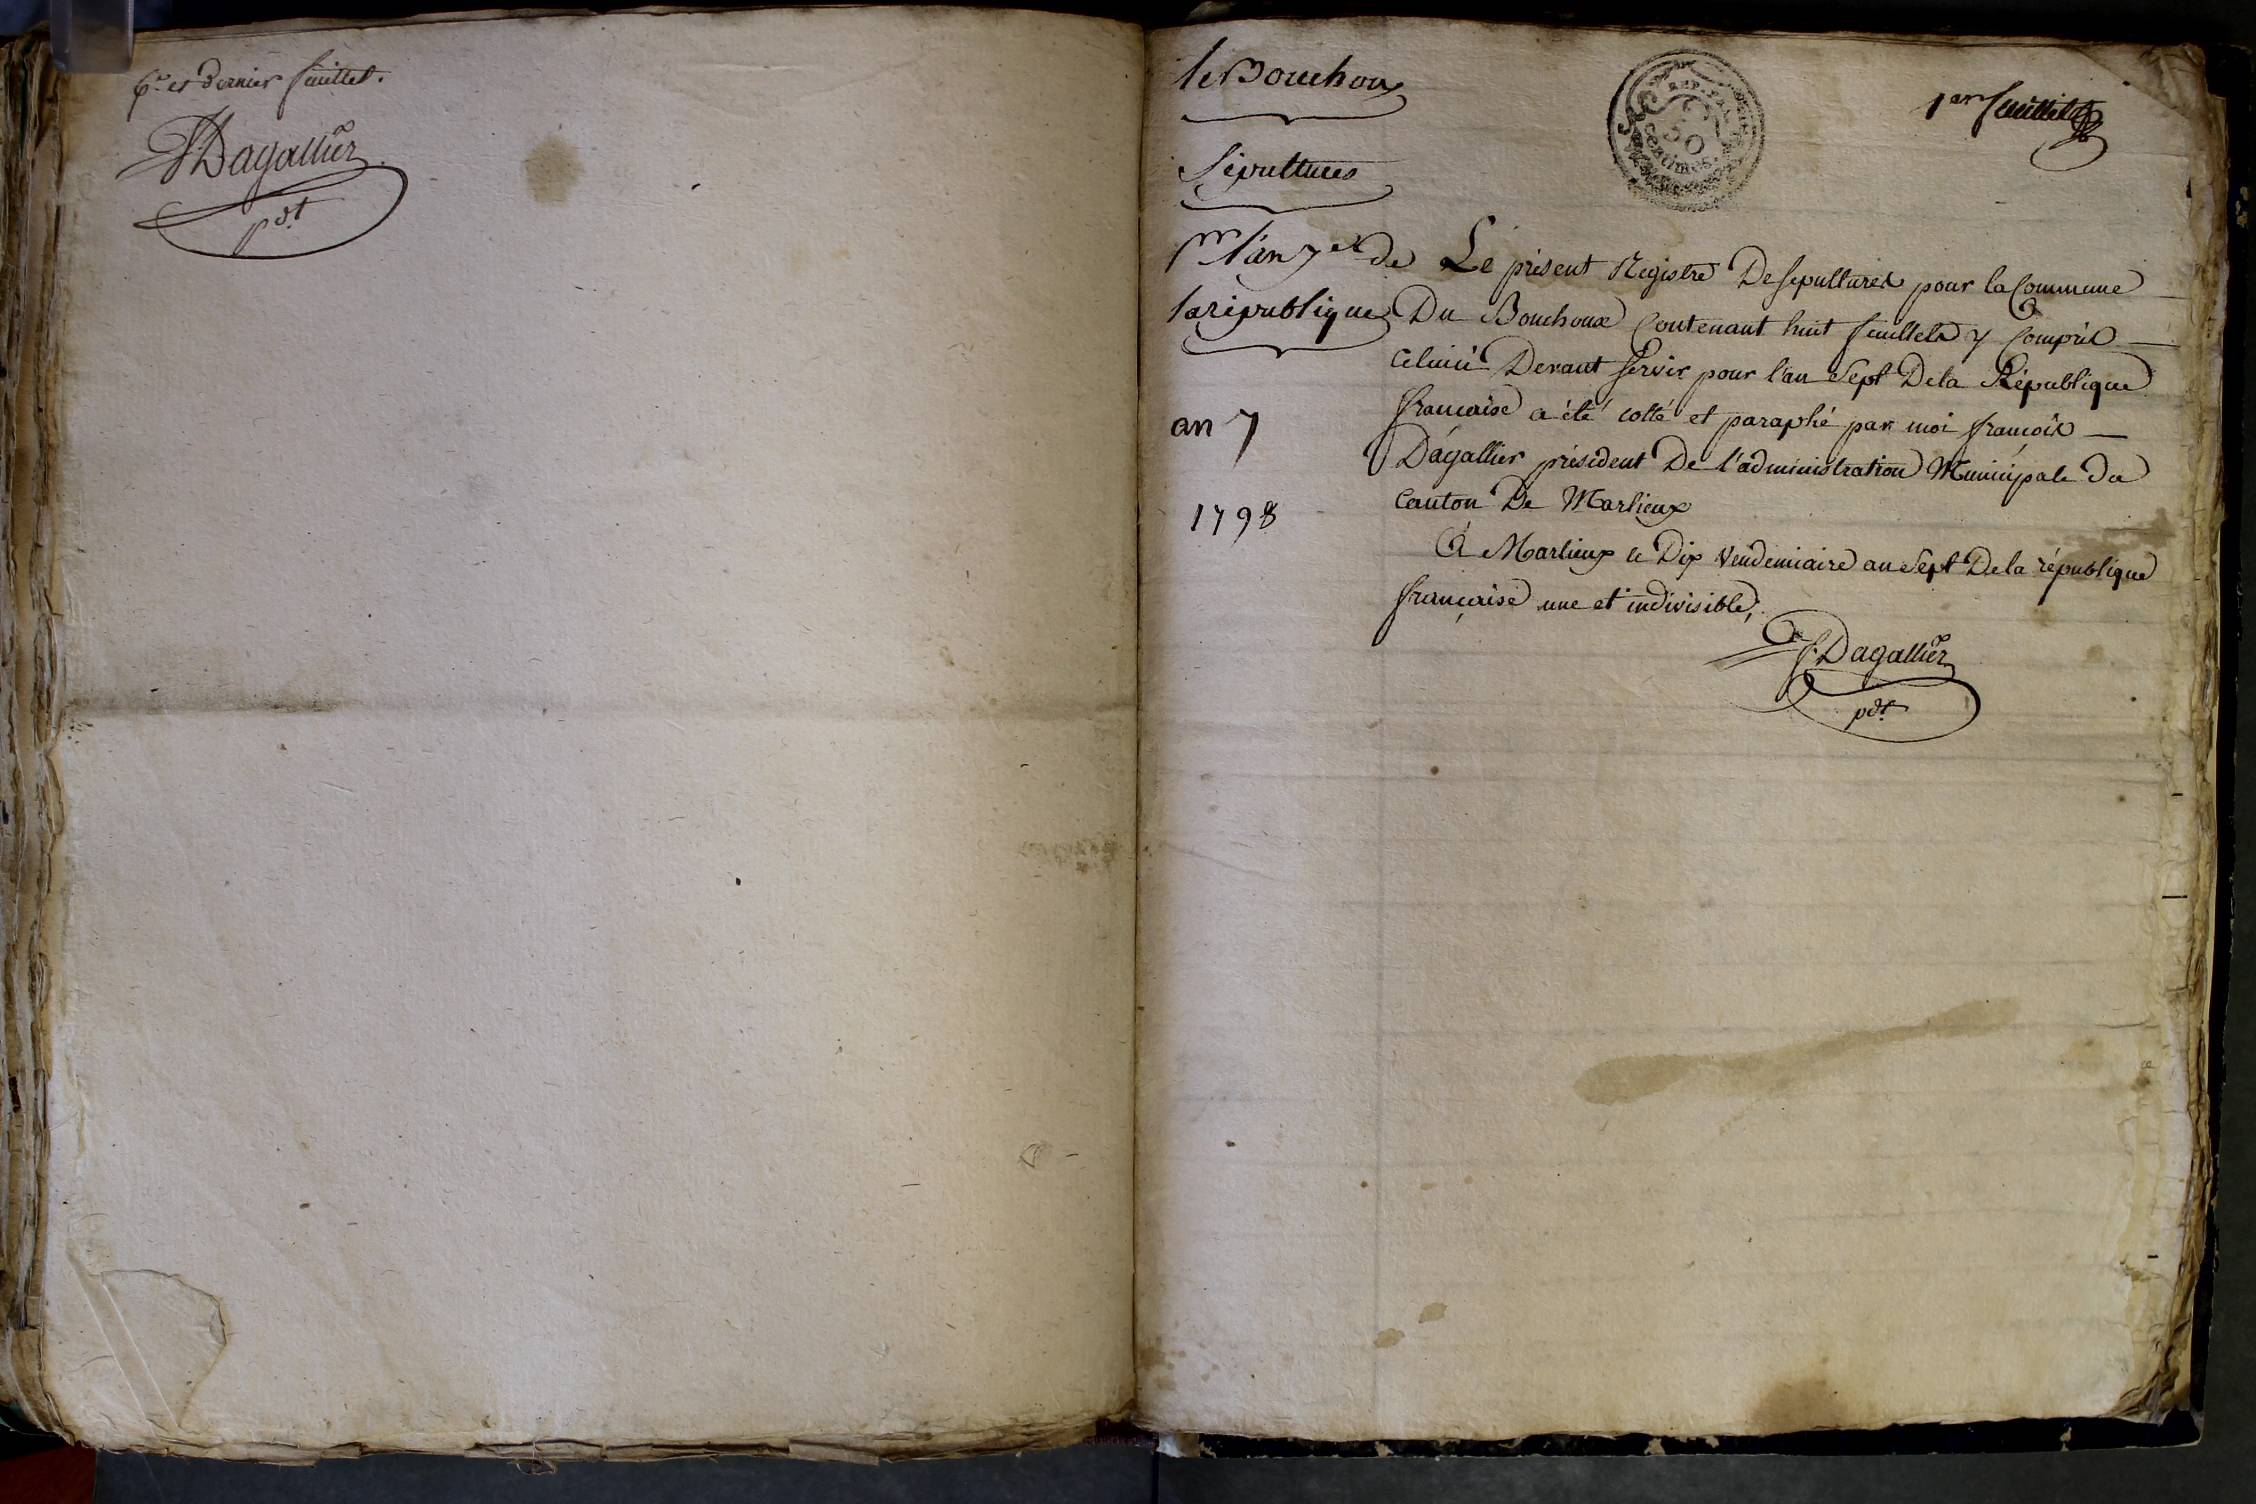 6.e et dernier feuillet.
F. Dagallier
pdt
le Bouchoux
Sépultures
pr l'an 7e de
la république
an 7
1798
REP. FRA
50
centimes
1er feuillet
Le présent Registre De sepultures pour la Commune
Du Bouchoux Contenant huit feuillets y Compris
celuici Devant servir pour l'an Sept De la République
française a été cotté et paraphé par moi françois
Dagallier président De l'administration Municipale du
Canton De Marlieux
A Marlieux le Dix Vendemiaire an Sept De la république
française une et indivisible,
F. Dagallier
pdt